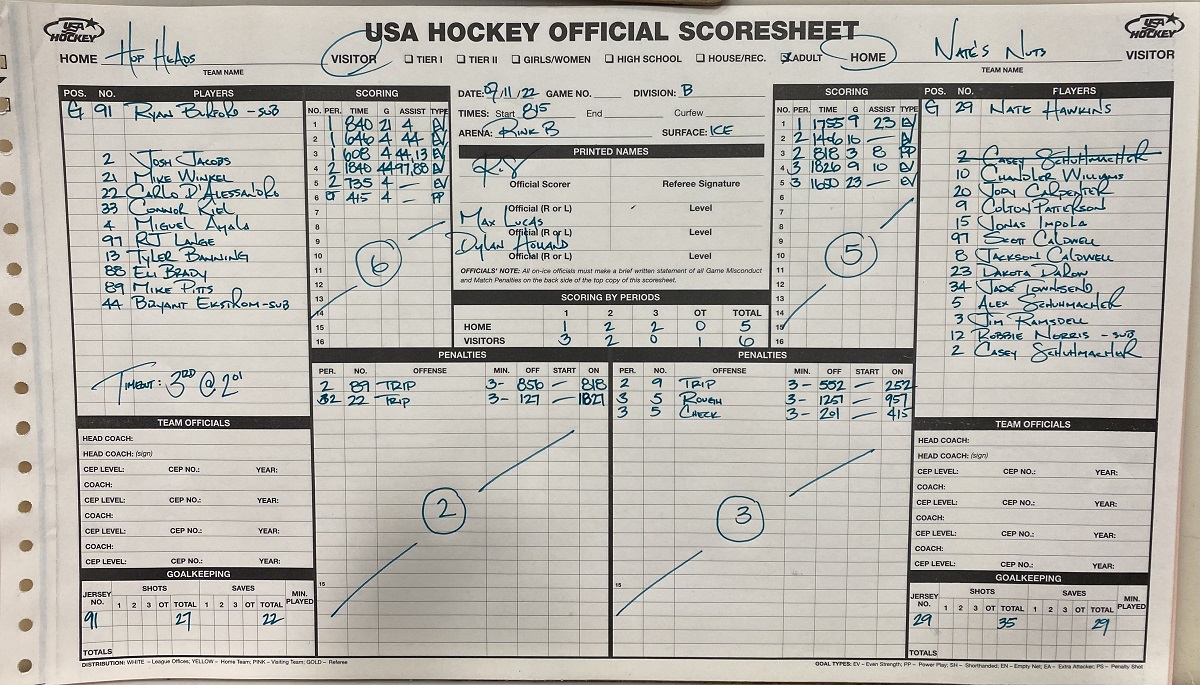 USA HOCKEY OFFICIAL SCORESHEET
USA HOCKEY
USA HOCKEY
HOME HOP HEADS VISITOR
TEAM NAME
☐ TIER I ☐ TIER II ☐ GIRLS/WOMEN ☐ HIGH SCHOOL ☐ HOUSE/REC. ☒ ADULT
HOME NATE'S NUTS VISITOR
TEAM NAME
POS. NO. PLAYERS
G 91 RYAN BUKFORD - SUB
2 JOSH JACOBS
21 MIKE WINKEL
22 CARLO D'ALESSANDRO
33 CONNOR KIEL
4 MIGUEL AYALA
97 RJ LANGE
13 TYLER BANNING
88 ELI BRADY
89 MIKE PITTS
44 BRYANT EKSTROM - SUB
TIMEOUT: 3RD @ 201
SCORING
NO. PER. TIME G ASSIST TYPE
1 1 840 21 4 EV
2 1 646 4 44 EV
3 1 608 4 44,13 EV
4 2 1840 44 97,88 EV
5 2 735 4 — EV
6 OT 415 4 — PP
7
8
9
10
11
12
13
14
15
16
6
DATE: 09/11/22 GAME NO. DIVISION: B
TIMES: Start 815 End Curfew
ARENA: RINK B SURFACE: ICE
PRINTED NAMES
Official Scorer Referee Signature
Official (R or L) Level
MAX LUCAS
Official (R or L) Level
DYLAN HOLLAND
Official (R or L) Level
OFFICIALS' NOTE: All on-ice officials must make a brief written statement of all Game Misconduct
and Match Penalties on the back side of the top copy of this scoresheet.
SCORING BY PERIODS
1 2 3 OT TOTAL
HOME 1 2 2 0 5
VISITORS 3 2 0 1 6
SCORING
NO. PER. TIME G ASSIST TYPE
1 1 1755 9 23 EV
2 2 1446 16 — EV
3 2 818 3 8 PP
4 3 1826 9 10 EV
5 3 1650 23 — EV
6
7
8
9
10
11
12
13
14
15
16
5
POS. NO. PLAYERS
G 29 NATE HAWKINS
2 CASEY SCHUHMACHER
10 CHANDLER WILLIAMS
20 JODY CARPENTER
9 COLTON PATTERSON
15 JONAS IMPOLA
97 SCOTT CALDWELL
8 JACKSON CALDWELL
23 DAKOTA DARON
34 JADE TOWNSEND
5 ALEX SCHUHMACHER
3 JIM RAMSDELL
12 ROBBIE NORRIS - SUB
2 CASEY SCHUHMACHER
PENALTIES
PER. NO. OFFENSE MIN. OFF START ON
2 89 TRIP 3- 856 — 818
2 22 TRIP 3- 127 — 1827
15
2
PENALTIES
PER. NO. OFFENSE MIN. OFF START ON
2 9 TRIP 3- 552 — 252
3 5 ROUGH 3- 1257 — 957
3 5 CHECK 3- 201 — 415
15
3
TEAM OFFICIALS
HEAD COACH:
HEAD COACH: (sign)
CEP LEVEL: CEP NO.: YEAR:
COACH:
CEP LEVEL: CEP NO.: YEAR:
COACH:
CEP LEVEL: CEP NO.: YEAR:
COACH:
CEP LEVEL: CEP NO.: YEAR:
TEAM OFFICIALS
HEAD COACH:
HEAD COACH: (sign)
CEP LEVEL: CEP NO.: YEAR:
COACH:
CEP LEVEL: CEP NO.: YEAR:
COACH:
CEP LEVEL: CEP NO.: YEAR:
COACH:
CEP LEVEL: CEP NO.: YEAR:
GOALKEEPING
JERSEY NO. SHOTS SAVES MIN. PLAYED
1 2 3 OT TOTAL 1 2 3 OT TOTAL
91 27 22
TOTALS
GOALKEEPING
JERSEY NO. SHOTS SAVES MIN. PLAYED
1 2 3 OT TOTAL 1 2 3 OT TOTAL
29 35 29
TOTALS
DISTRIBUTION: WHITE – League Offices; YELLOW – Home Team; PINK – Visiting Team; GOLD – Referee
GOAL TYPES: EV – Even Strength, PP – Power Play; SH – Shorthanded; EN – Empty Net; EA – Extra Attacker; PS – Penalty Shot